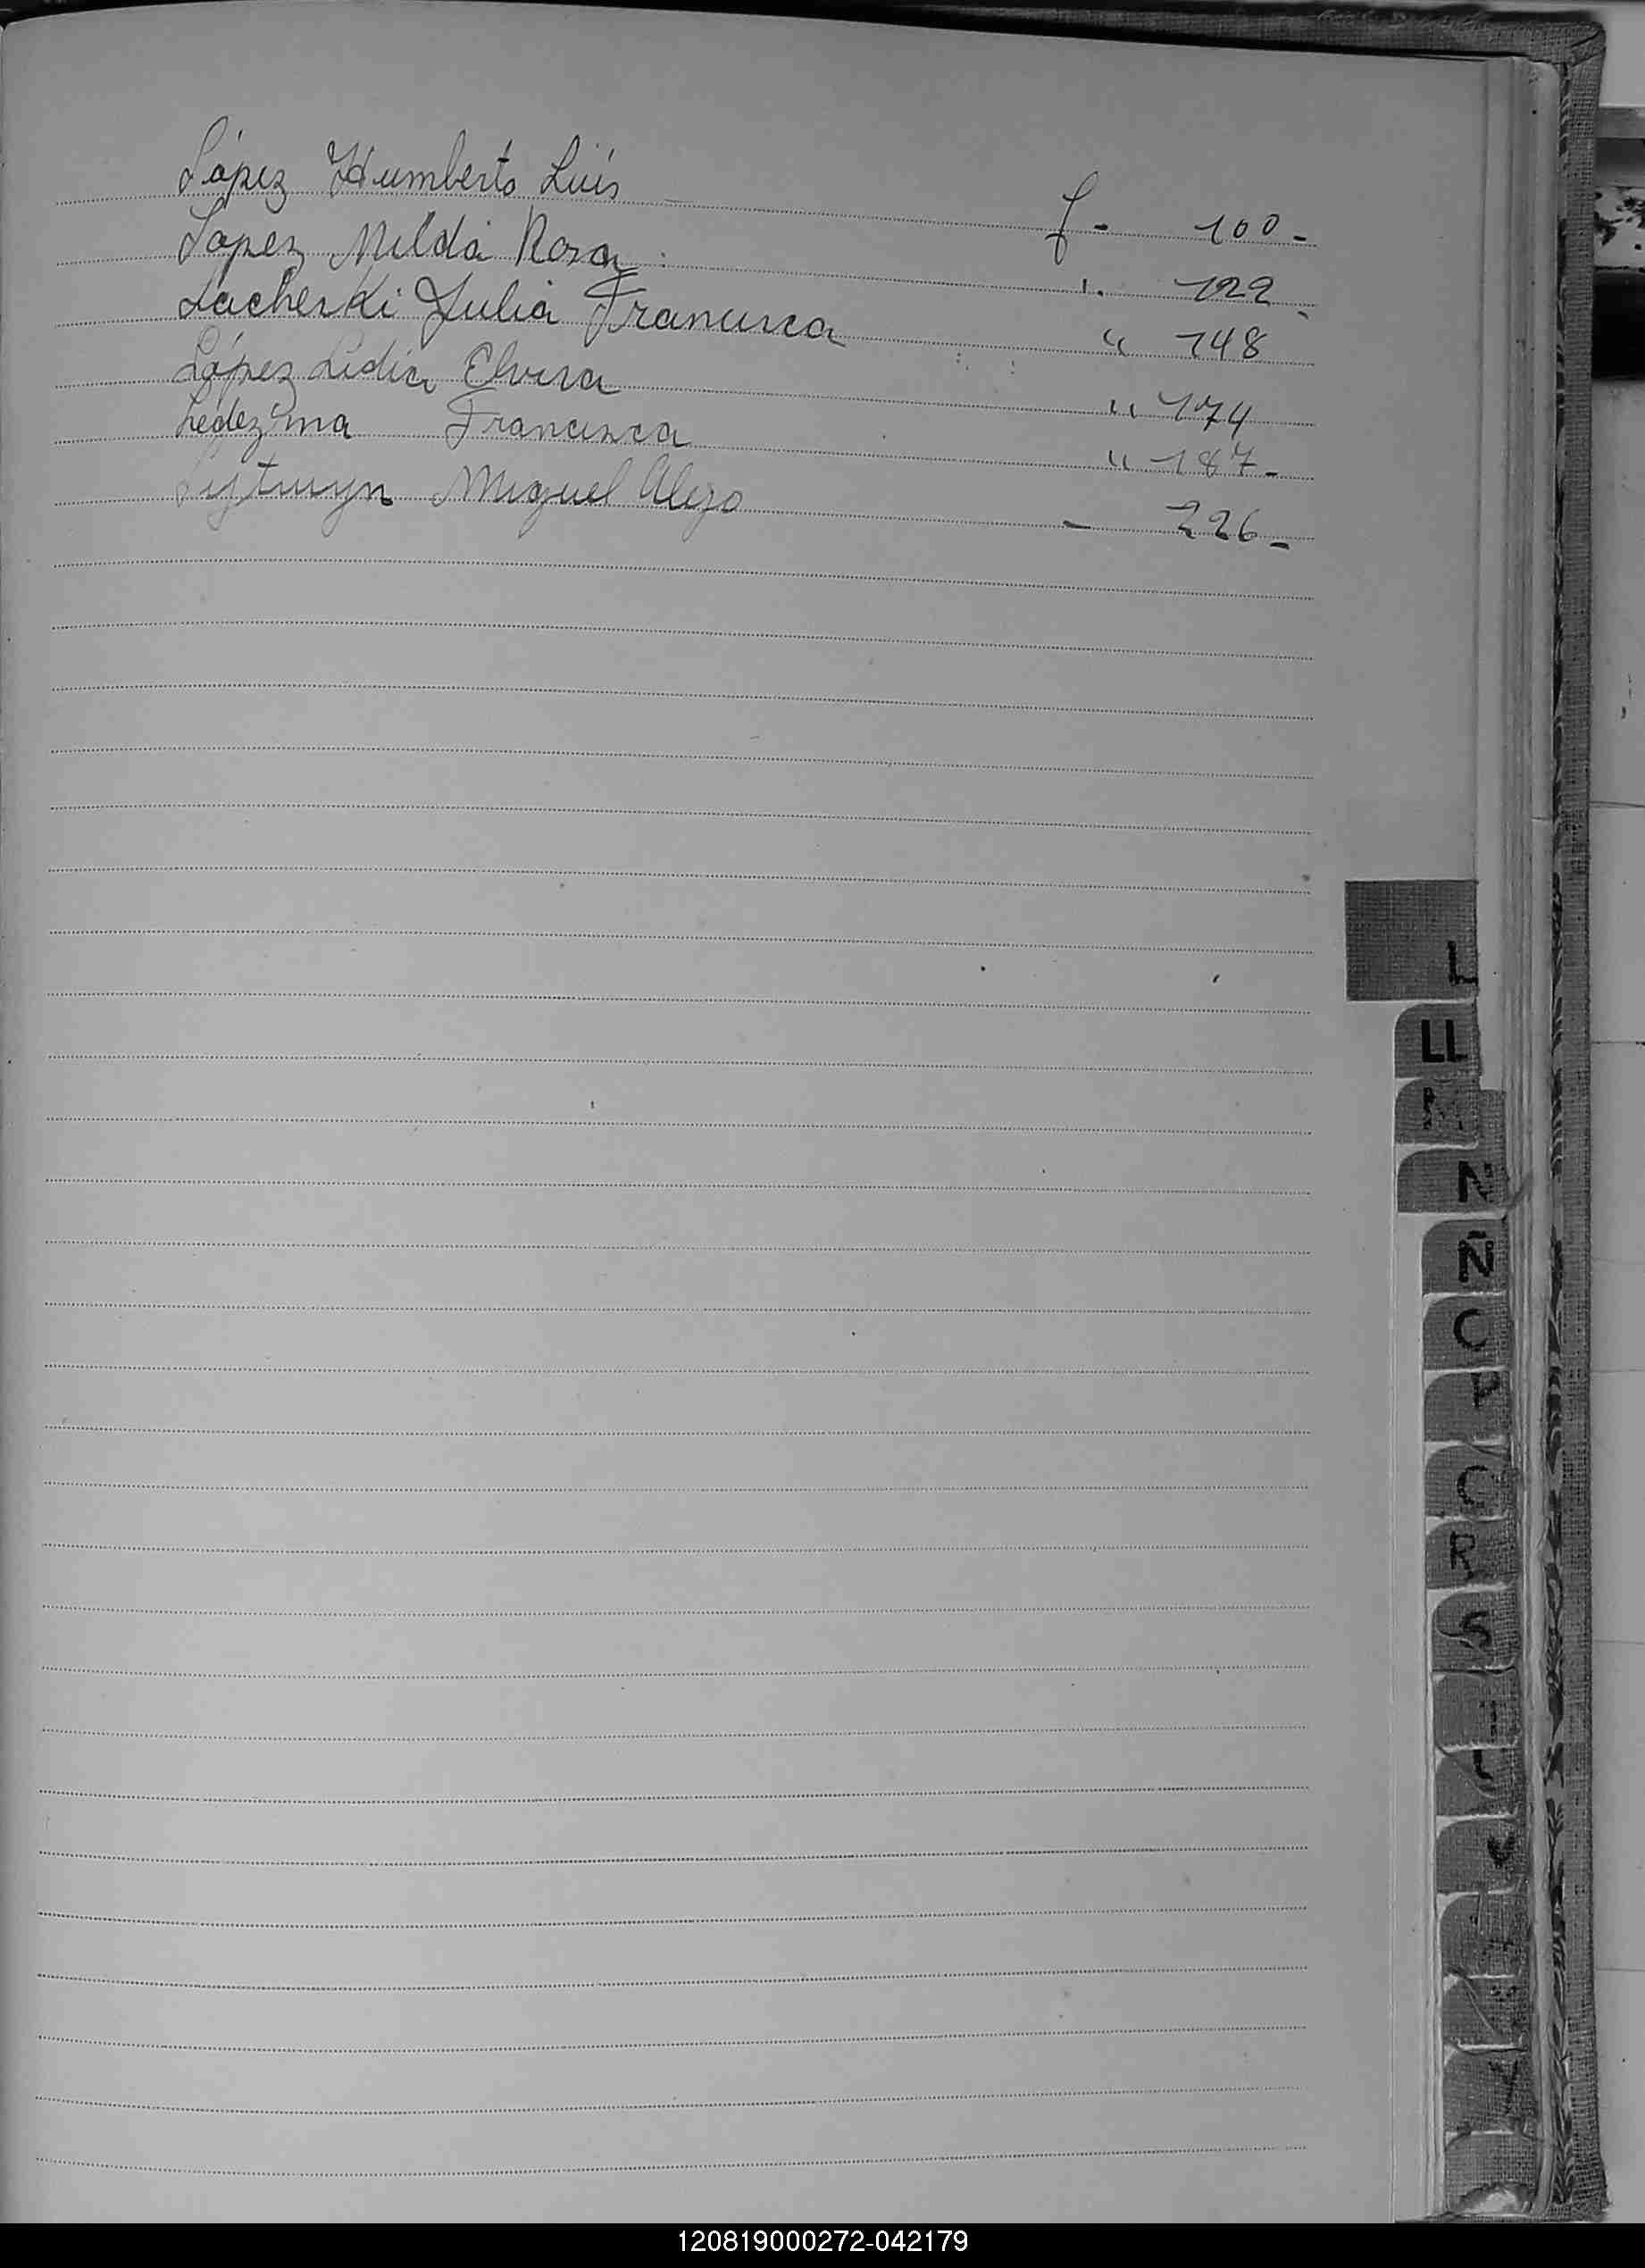 López Humberto Luis f - 100 -
López Nilda Rosa " 122 -
Lacherki Julia Francisca " 148
López Lidia Elvira " 174
Ledezma Francisca " 187 -
Miguel Alejo - 226 -
L
LL
M
N
Ñ
O
P
Q
R
S
120819000272-042179